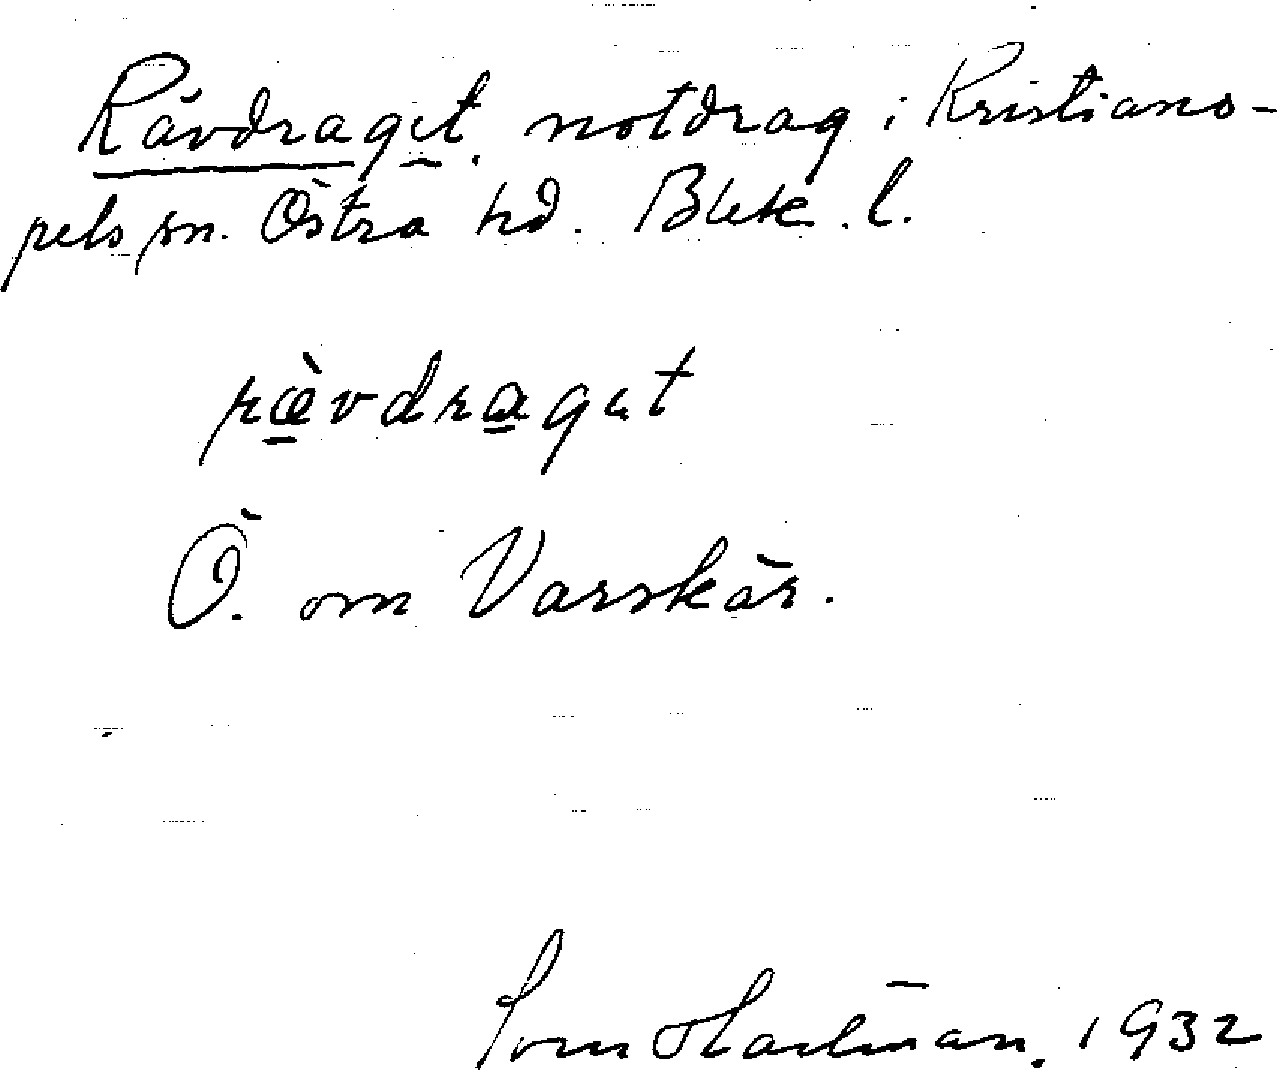 Rävdraget, notdrag i Kristiano-
pels sn. Östra hd. Blek. l.
rævdragut
Ö. om Varskär.
Sven Hallman. 1932